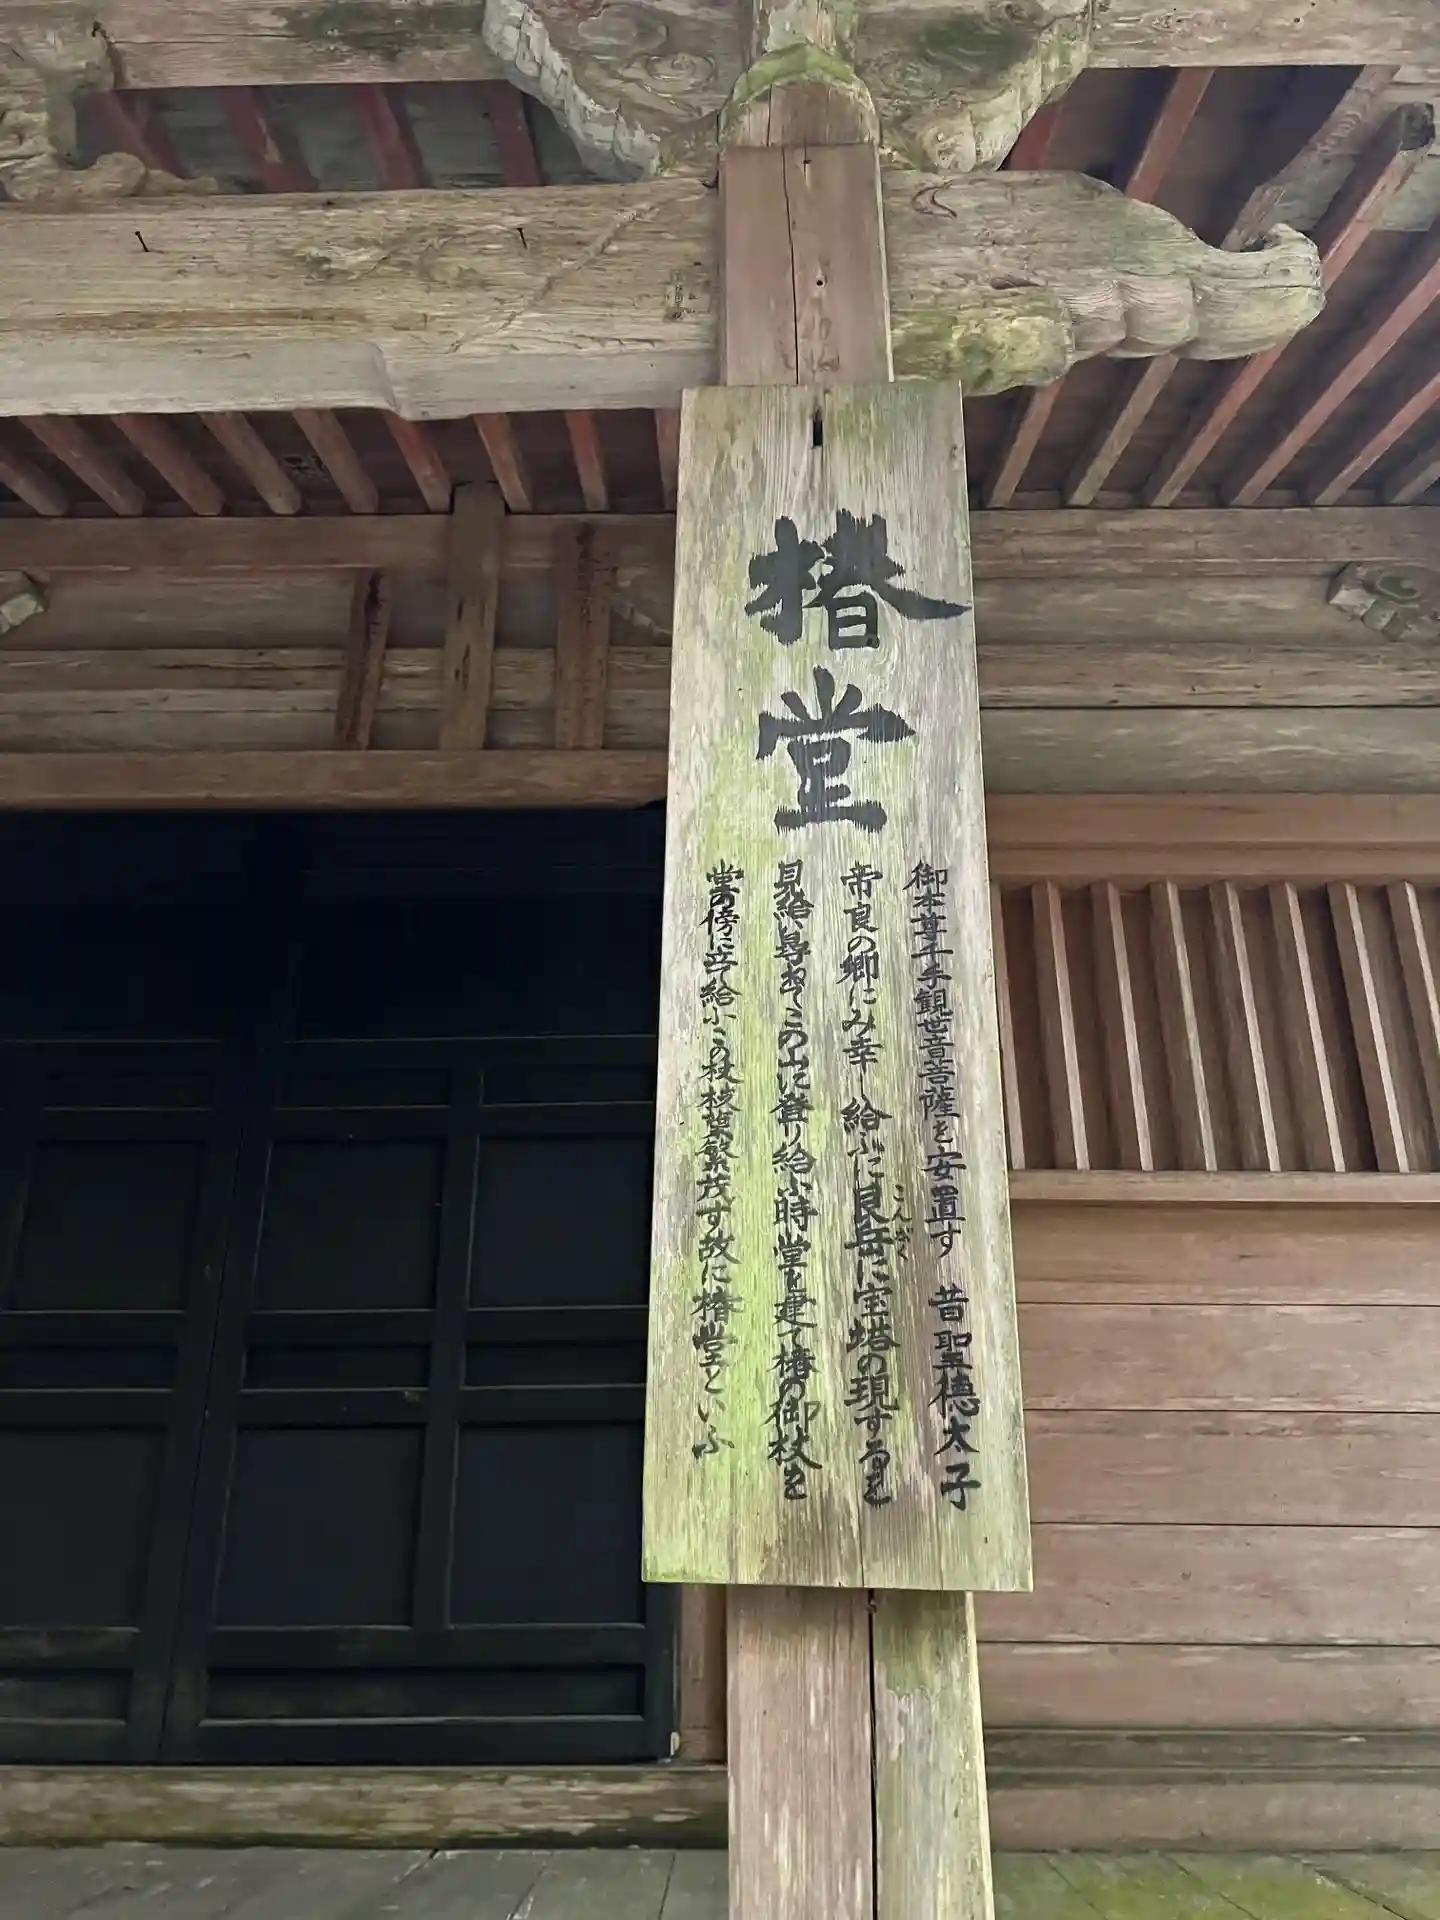 椿堂
御本尊千手観世音菩薩を安置す 昔聖徳太子
帝良の郷にみ幸し給ふに艮岳に宝塔の現するを
こんがく
見給い尋ねてこの山に登り給ふ時堂を建て椿の御杖を
堂の傍に立て給ふこの杖枝葉繁茂す故に椿堂といふ